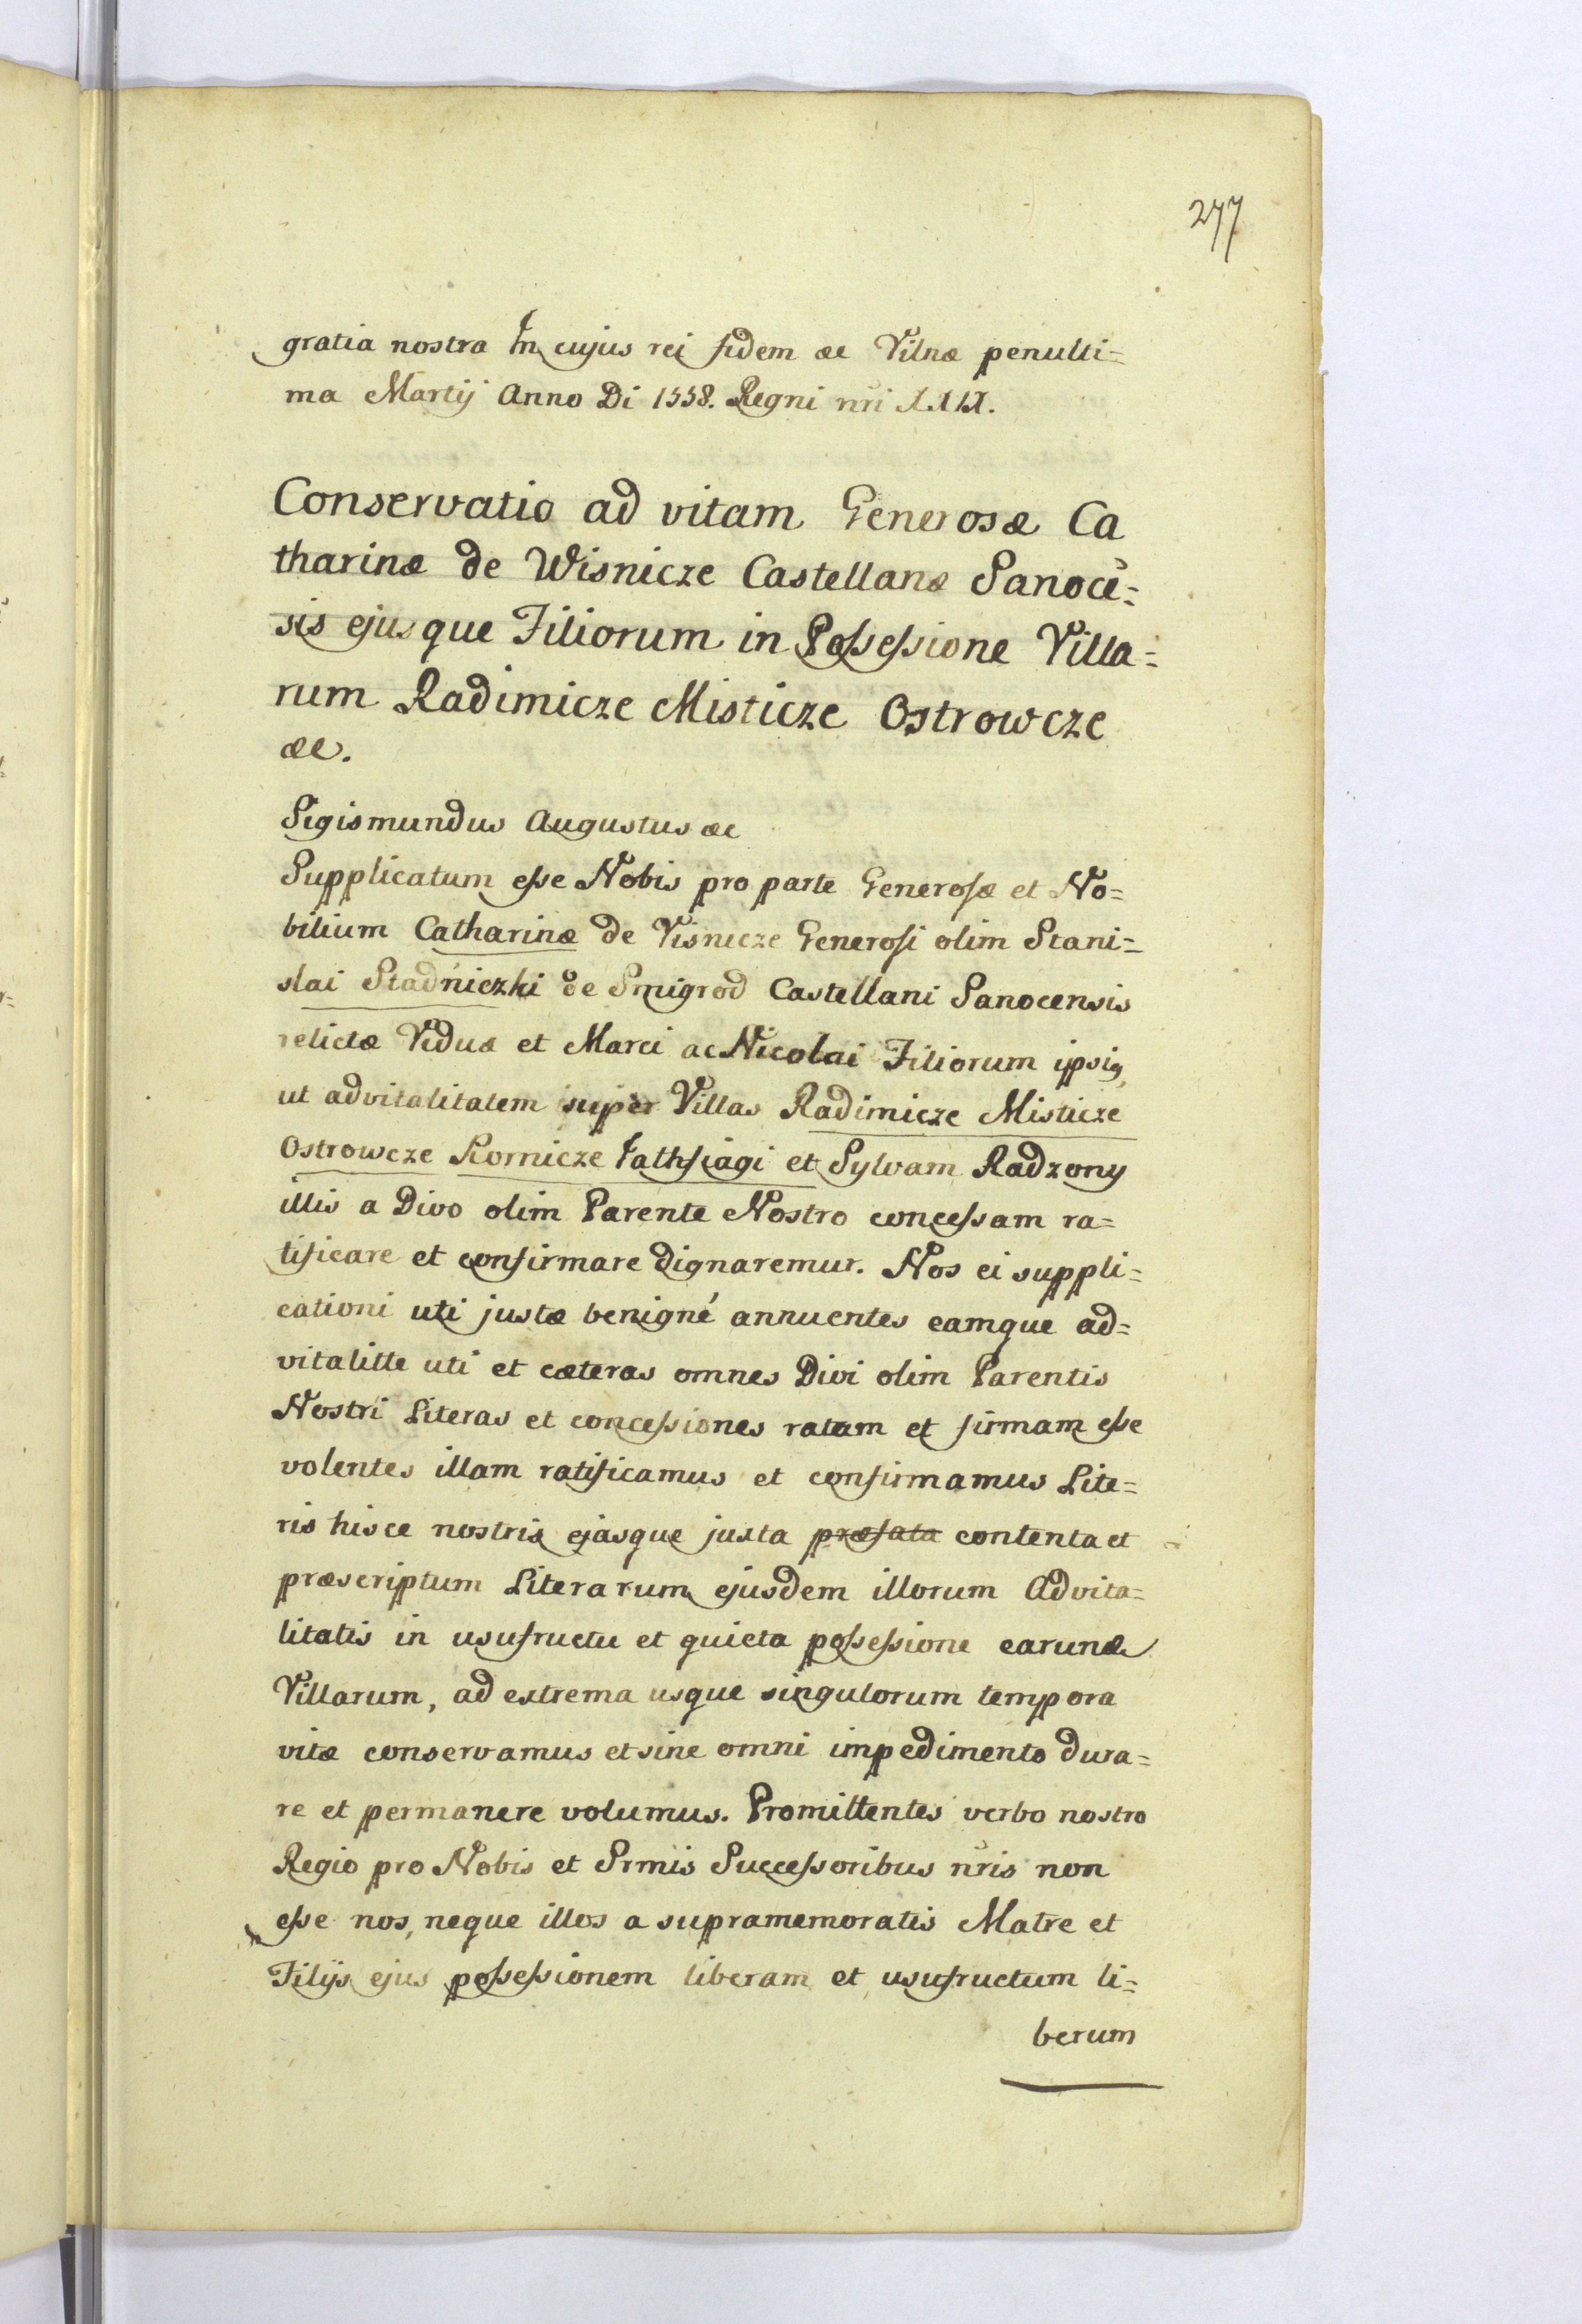 277
gratia nostra In cujus rei fidem &c Vilnæ penulti=
ma Martij Anno Di 1558. Regni nri XXIX.
Conservatio ad vitam Generosæ Ca
tharinæ de Wisnicze Castellanæ Sanocē=
sis ejusque Filiorum in Possessione Villa=
rum Radimicze Misticze Ostrowcze
&c.
Sigismundus Augustus &c
Supplicatum esse Nobis pro parte Generosæ et No=
bilium Catharinæ de Visnicze Generosi olim Stani=
slai Stadniczki de Smigrod Castellani Sanocensis
relictæ Viduæ et Marci ac Nicolai Filiorum ipsig,
ut advitalitatem super Villas Radimicze Misticze
Ostrowcze Kornicze Jathsiagi et Sylvam Radzony
illis a Divo olim Parente Nostro concessam ra=
tificare et confirmare dignaremur. Nos ei suppli=
cationi uti justæ benigné annuentes eamque ad=
vitalitte uti et cæteras omnes Divi olim Parentis
Nostri Literas et concessiones ratam et firmam esse
volentes illam ratificamus et confirmamus Lite=
ris hisce nostris ejasque juxta præfata contenta et
præscriptum Literarum ejusdem illorum Advita=
litatis in usufructu et quieta possessione earund
Villarum, ad extrema usque singulorum tempora
vitæ conservamus et sine omni impedimento dura=
re et permanere volumus. Promittentes verbo nostro
Regio pro Nobis et Srmis Successoribus nris non
esse nos, neque illos a supramemoratis Matre et
Filijs ejus possessionem liberam et usufructum li=
berum